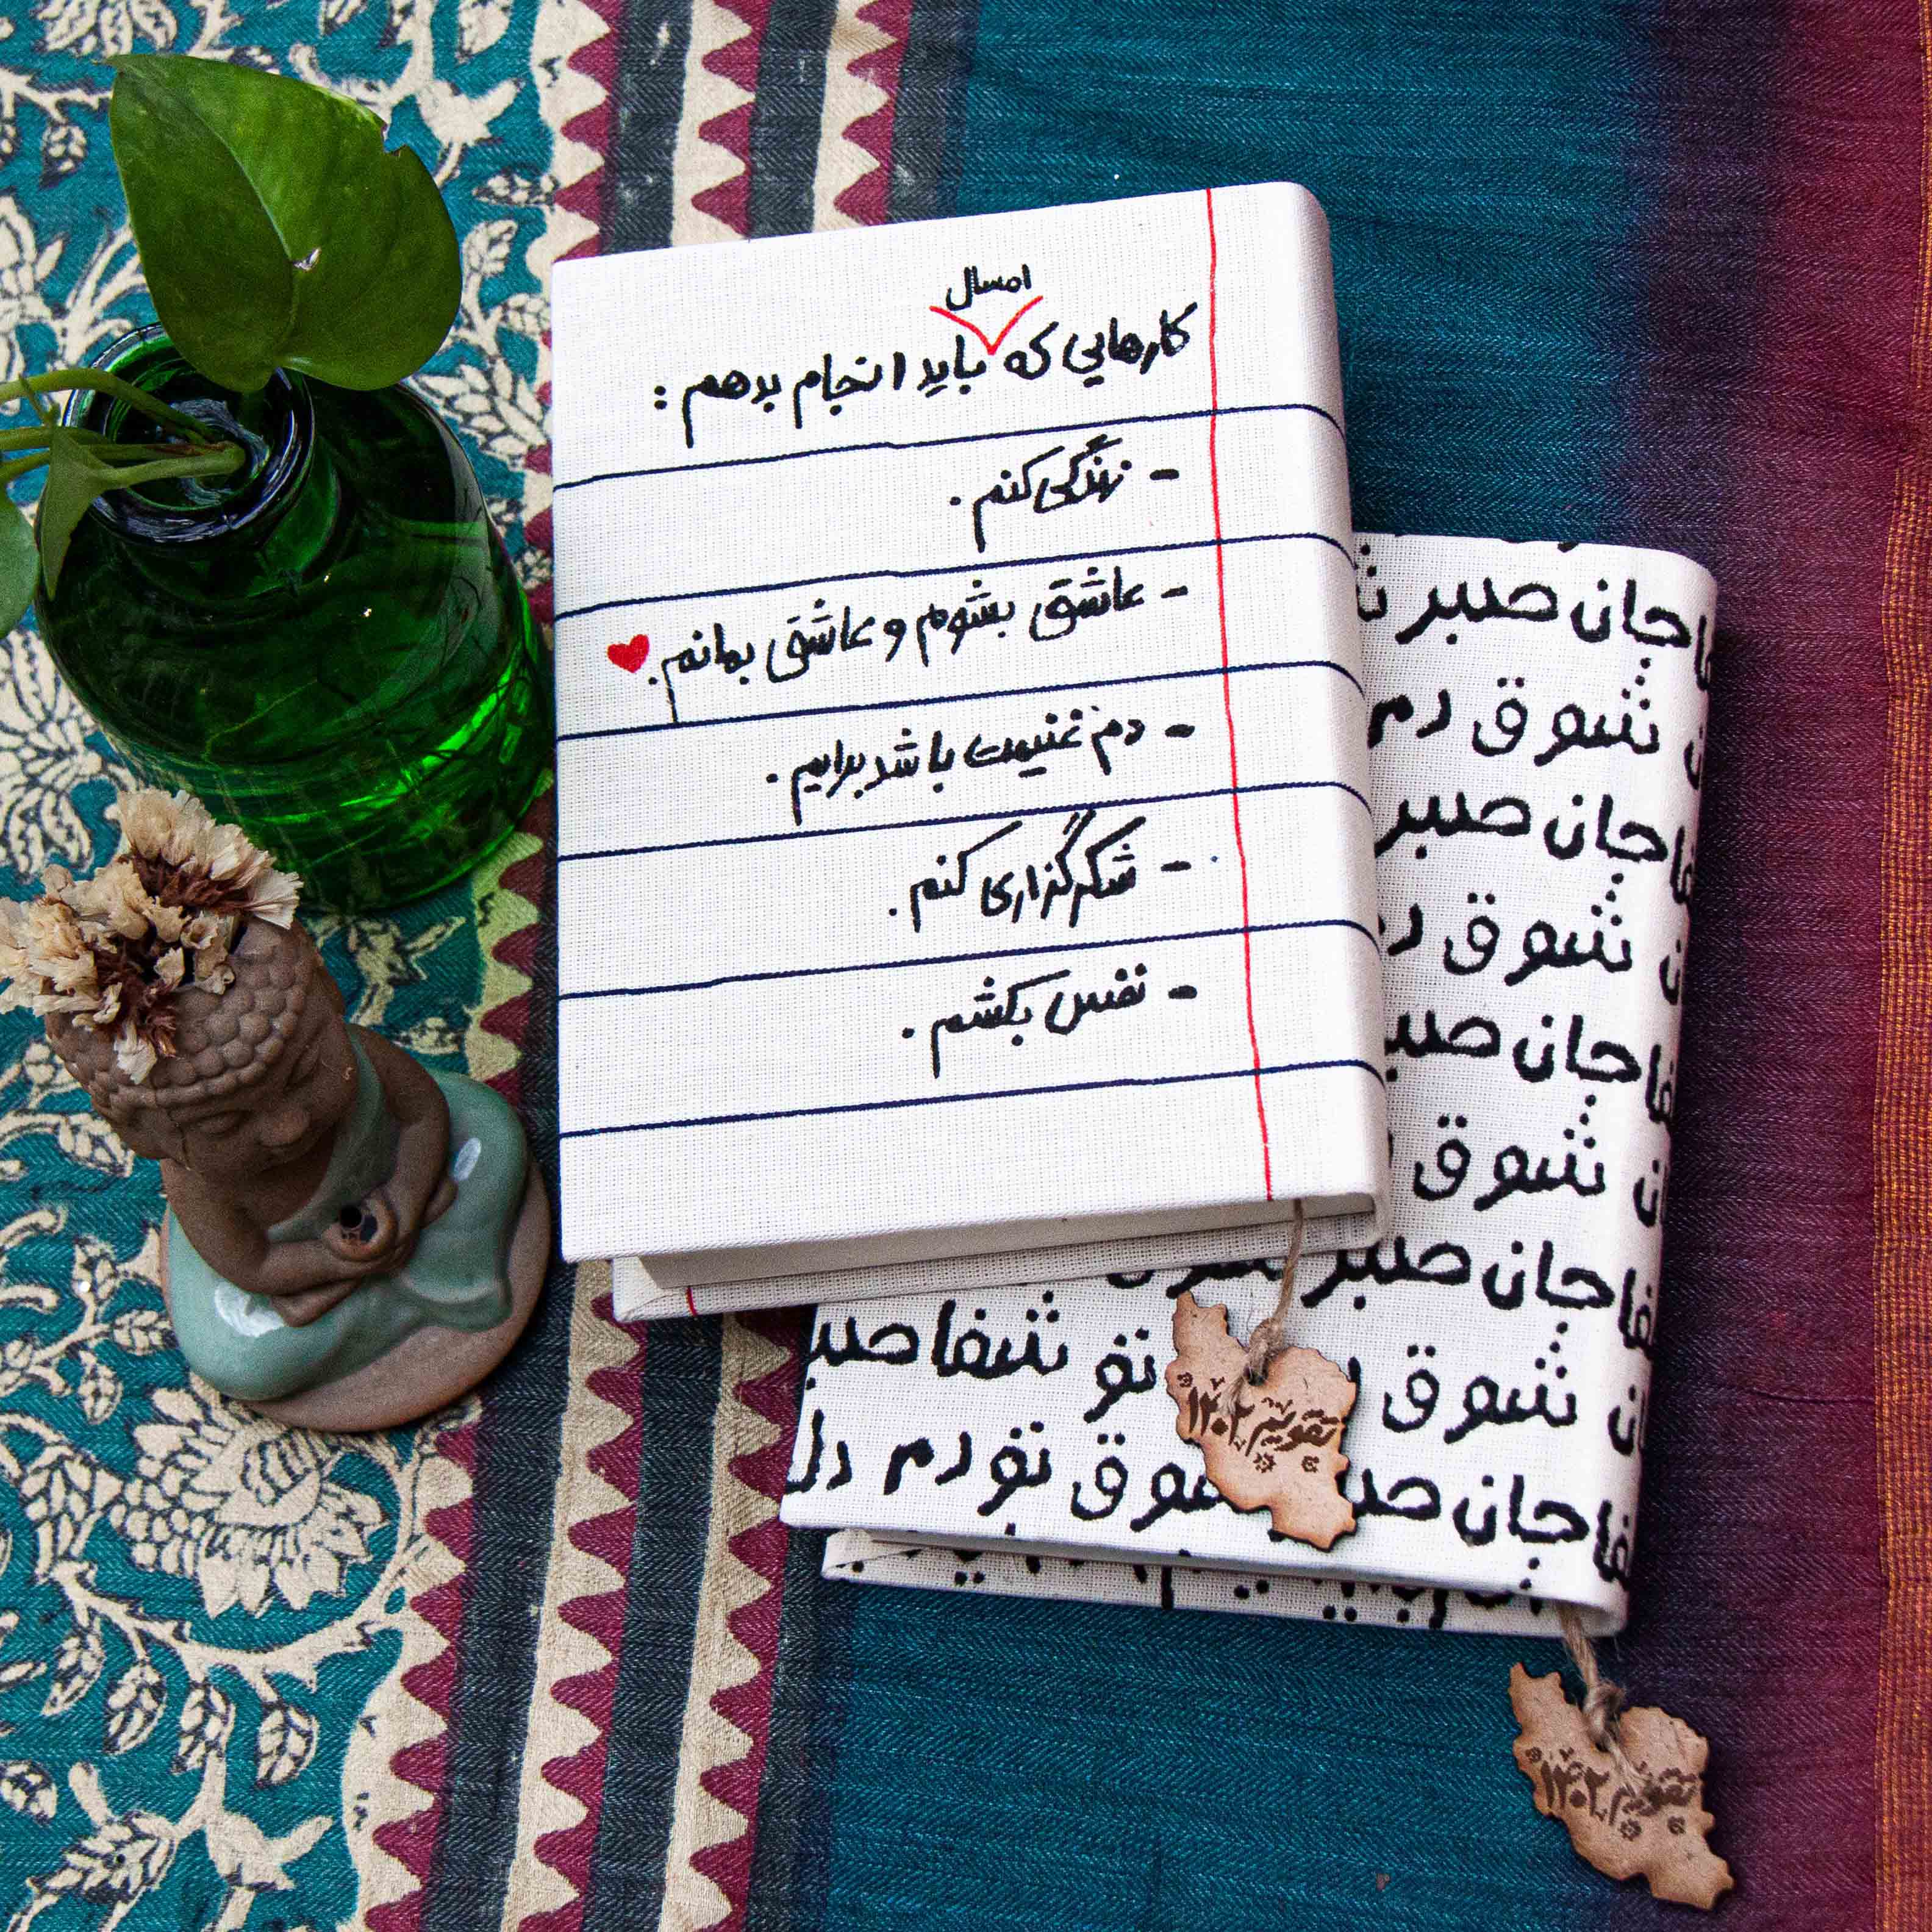 امسال
کارهایی که باید انجام بدهم :
- زندگی کنم .
- عاشق بشوم و عاشق بمانم .
- دم غنیمت باشد برایم .
- شکرگزاری کنم .
- نفس بکشم .
جان صبر
شوق دم
جان صبر
شوق
جان صبر
شوق
جان صبر
شوق تو شفا
جان شوق تو دم دل
تقویم ۱۴۰۲
تقویم ۱۴۰۲